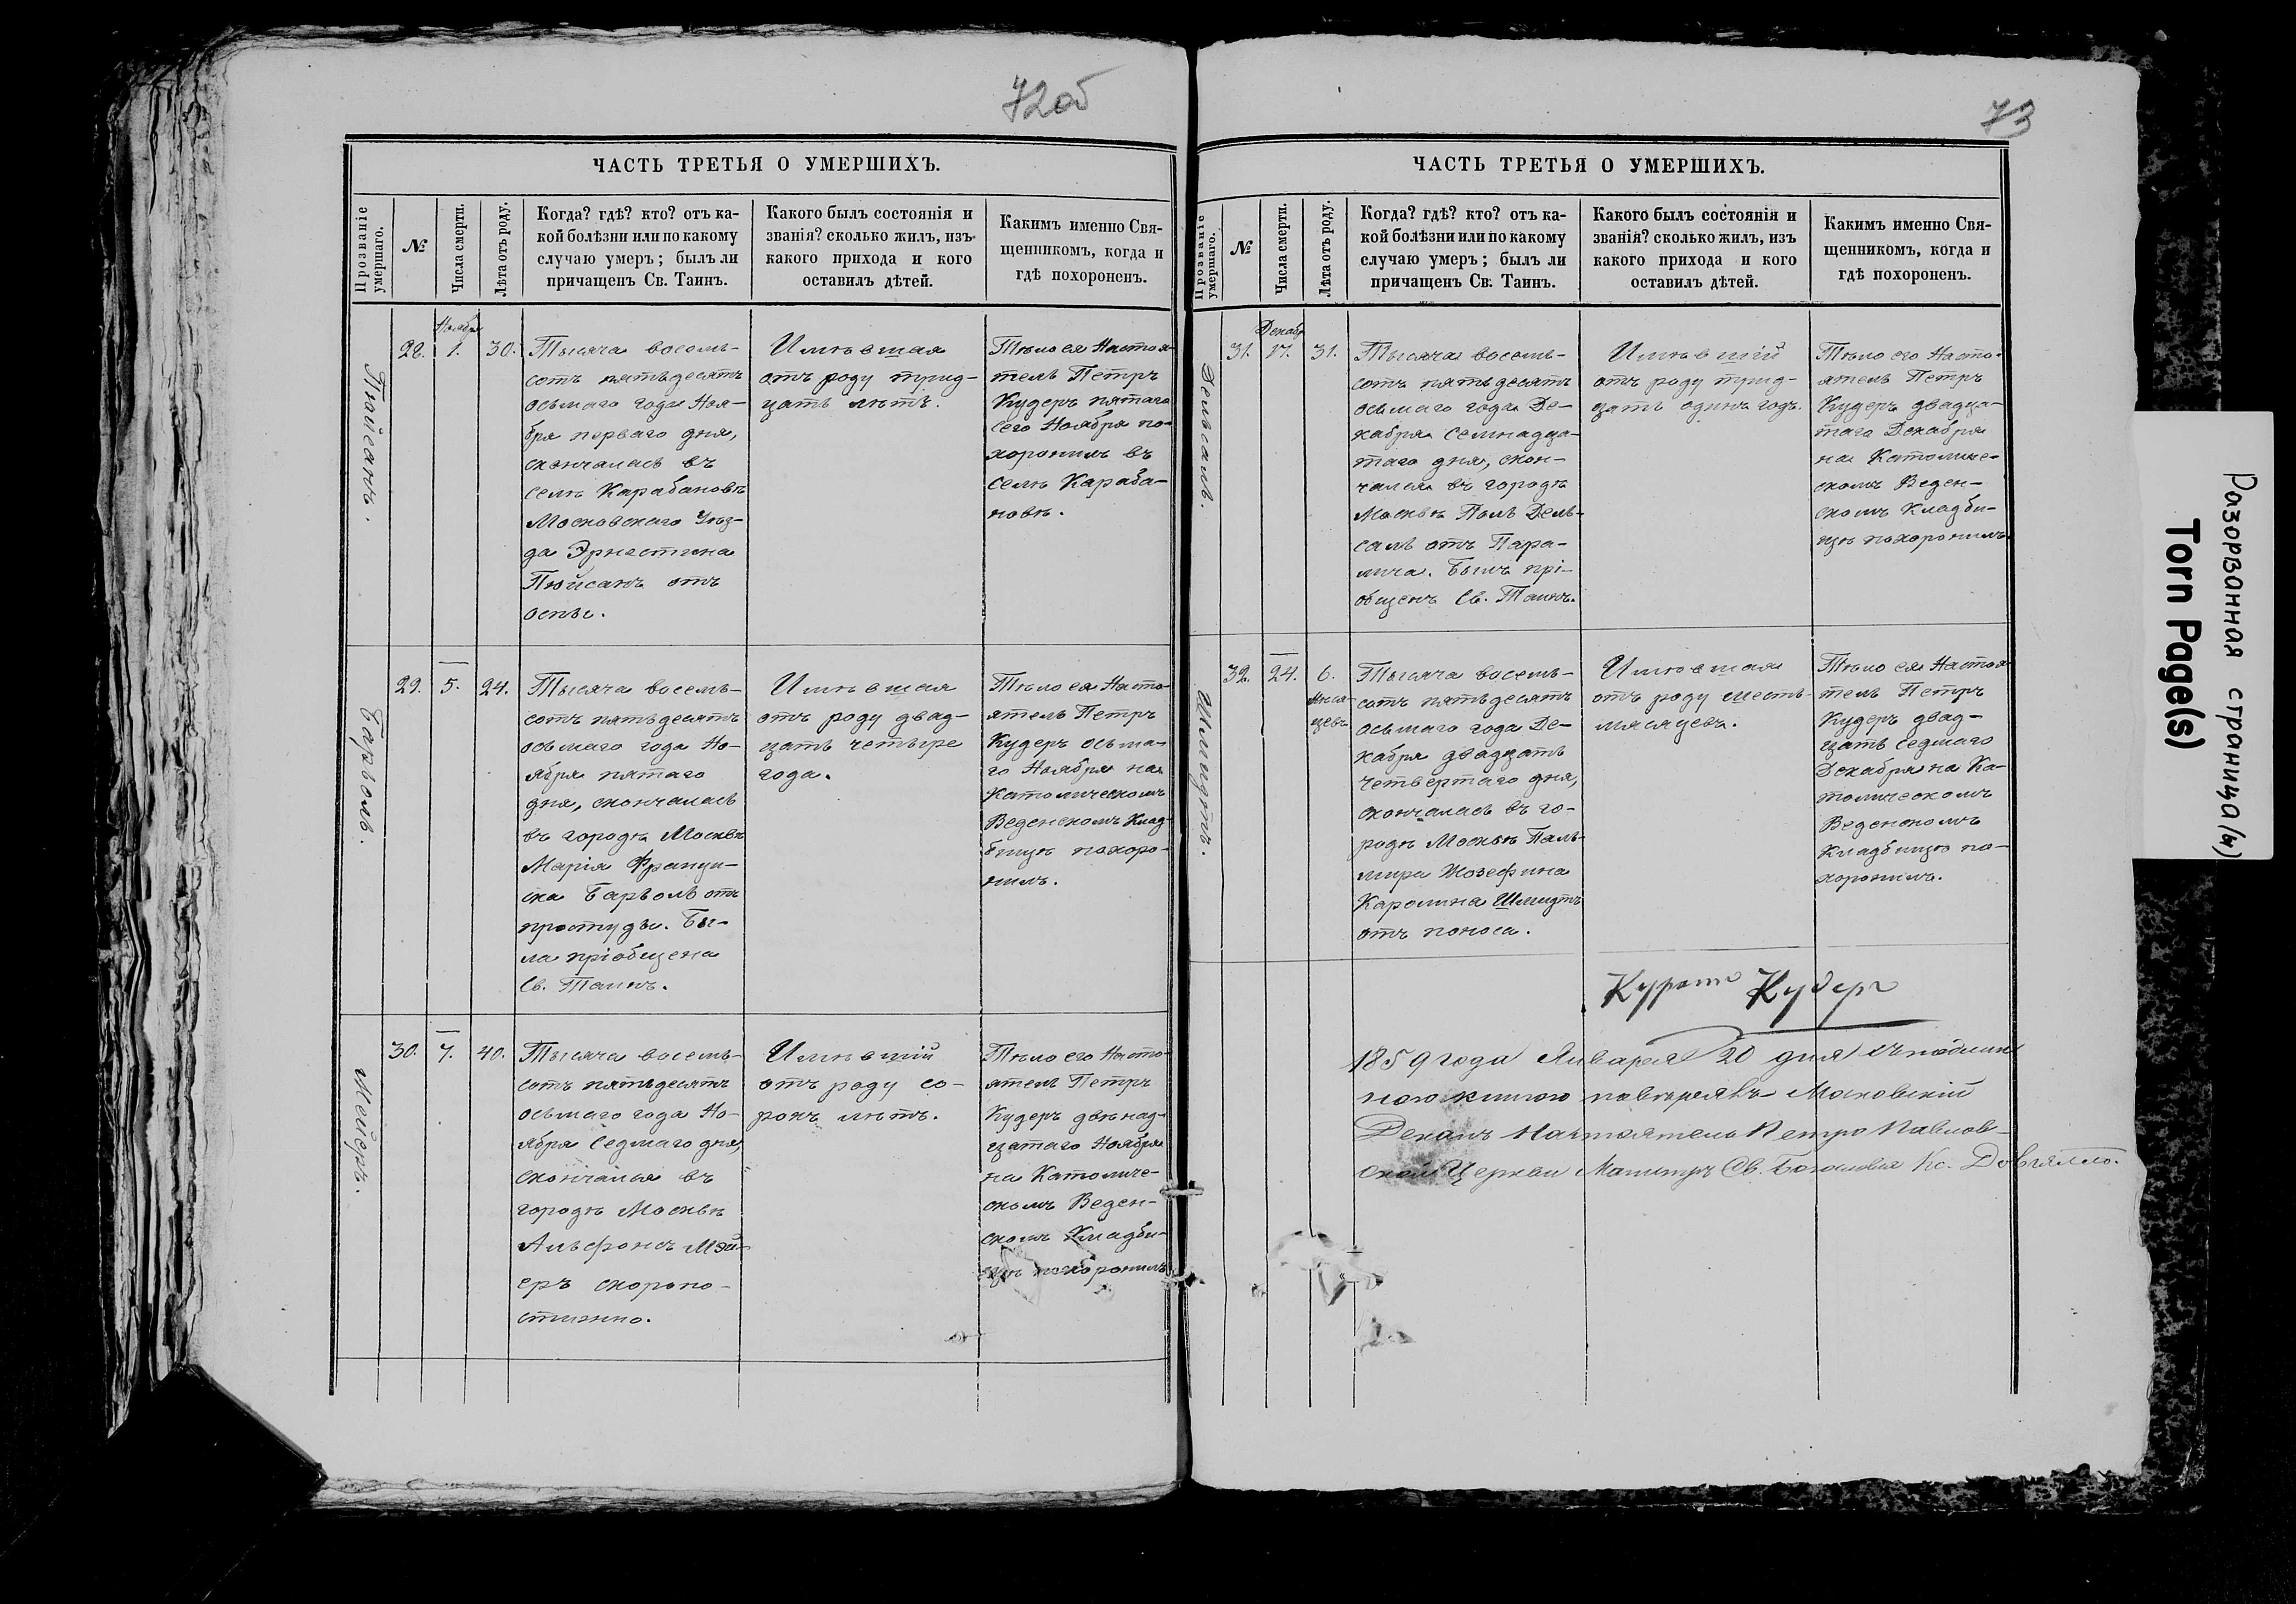 72об
ЧАСТЬ ТРЕТЬЯ О УМЕРШИХЪ.
Прозваніе умершаго.
№
Числа смерти.
Лѣта отъ роду.
Когда? гдѣ? кто? отъ ка-
кой болѣзни или по какому
случаю умеръ; былъ ли
причащенъ Св. Таинъ.
Какого былъ состоянія и
званія? сколько жилъ, изъ
какого прихода и кого
оставилъ дѣтей.
Каким именно Свя-
щенникомъ, когда и
гдѣ похороненъ.
Пюйсанъ.
28.
Ноябрь
1.
30.
Тысяча восемь-
сотъ пятьдесятъ
осьмаго года Ноя-
бря перваго дня,
скончалась въ
селѣ Карабановѣ
Московскаго Уѣз-
да Эрнестина
Пюйсанъ отъ
оспы.
Имѣвшая
отъ роду трид-
цать лѣтъ.
Тѣло ея Настоя-
тель Петръ
Кудеръ пятаго
сего Ноября по-
хоронилъ въ
селѣ Караба-
новѣ.
Барволь.
29.
5.
24.
Тысяча восемь-
сотъ пятьдесятъ
осьмаго года Но-
ября пятаго
дня, скончалась
въ городѣ Москвѣ
Марія Францис-
ка Барволь отъ
простуды. Бы-
ла пріобщена
Св. Таинъ.
Имѣвшая
отъ роду двад-
цать четыре
года.
Тѣло ея Насто-
ятель Петръ
Кудеръ осьма-
го Ноября на
Католическомъ
Веденскомъ Клад-
бищѣ похоро-
нилъ.
Мейеръ.
30.
7.
40.
Тысяча восемь-
сотъ пятьдесятъ
осьмаго года Но-
ября седмаго дня,
скончался въ
городѣ Москвѣ
Альфонсъ Мэй-
еръ скоропо-
стижно.
Имѣвшій
отъ роду со-
рокъ лѣтъ.
Тѣло его Насто-
ятель Петръ
Кудеръ двѣнад-
цатаго Ноября
на Католиче-
скомъ Веден-
скомъ Кладби-
щѣ похоронилъ
73
ЧАСТЬ ТРЕТЬЯ О УМЕРШИХЪ.
Прозваніе умершаго.
№
Числа смерти.
Лѣта отъ роду.
Когда? гдѣ? кто? отъ ка-
кой болѣзни или по какому
случаю умеръ; былъ ли
причащенъ Св. Таинъ.
Какого былъ состоянія и
званія? сколько жилъ, изъ
какого прихода и кого
оставилъ дѣтей.
Каким именно Свя-
щенникомъ, когда и
гдѣ похороненъ.
Дельсаль.
31.
Декабр
17.
31.
Тысяча восемь-
сотъ пятьдесятъ
осьмаго года Де-
кабря семнадца-
таго дня, скон-
чался въ городѣ
Москвѣ Поль Дель-
саль отъ Пара-
лича. Былъ прі-
общенъ Св. Таинъ.
Имѣвшій
отъ роду трид-
цать одинъ годъ.
Тѣло его Насто-
ятель Петръ
Кудеръ двадца-
таго Декабря
на Католиче-
скомъ Веден-
скомъ Кладби-
щѣ похоронилъ.
Шмидтъ.
32.
24.
6.
Мѣся-
цевъ
Тысяча восемь-
сотъ пятьдесятъ
осьмаго года Де-
кабря двадцать
четвертаго дня,
скончалась въ го-
родѣ Москвѣ Паль-
мира Жозефина
Каролина Шмидтъ
отъ поноса.
Имѣвшая
отъ роду шесть
мѣсяцевъ.
Тѣло ея Настоя-
тель Петръ
Кудеръ двад-
цать седмаго
Декабря на Ка-
толическомъ
Веденскомъ
Кладбищѣ по-
хоронилъ.
Куратъ Кудеръ
1859 года Января 20 дня съ подлин
ною книгою повѣрялъ Московскій
Деканъ Настоятель Петро Павлов-
ской Церкви Магистръ Св. Богословія Кс. Довгялло.
Разорванная страница(ы)
Torn Page(s)